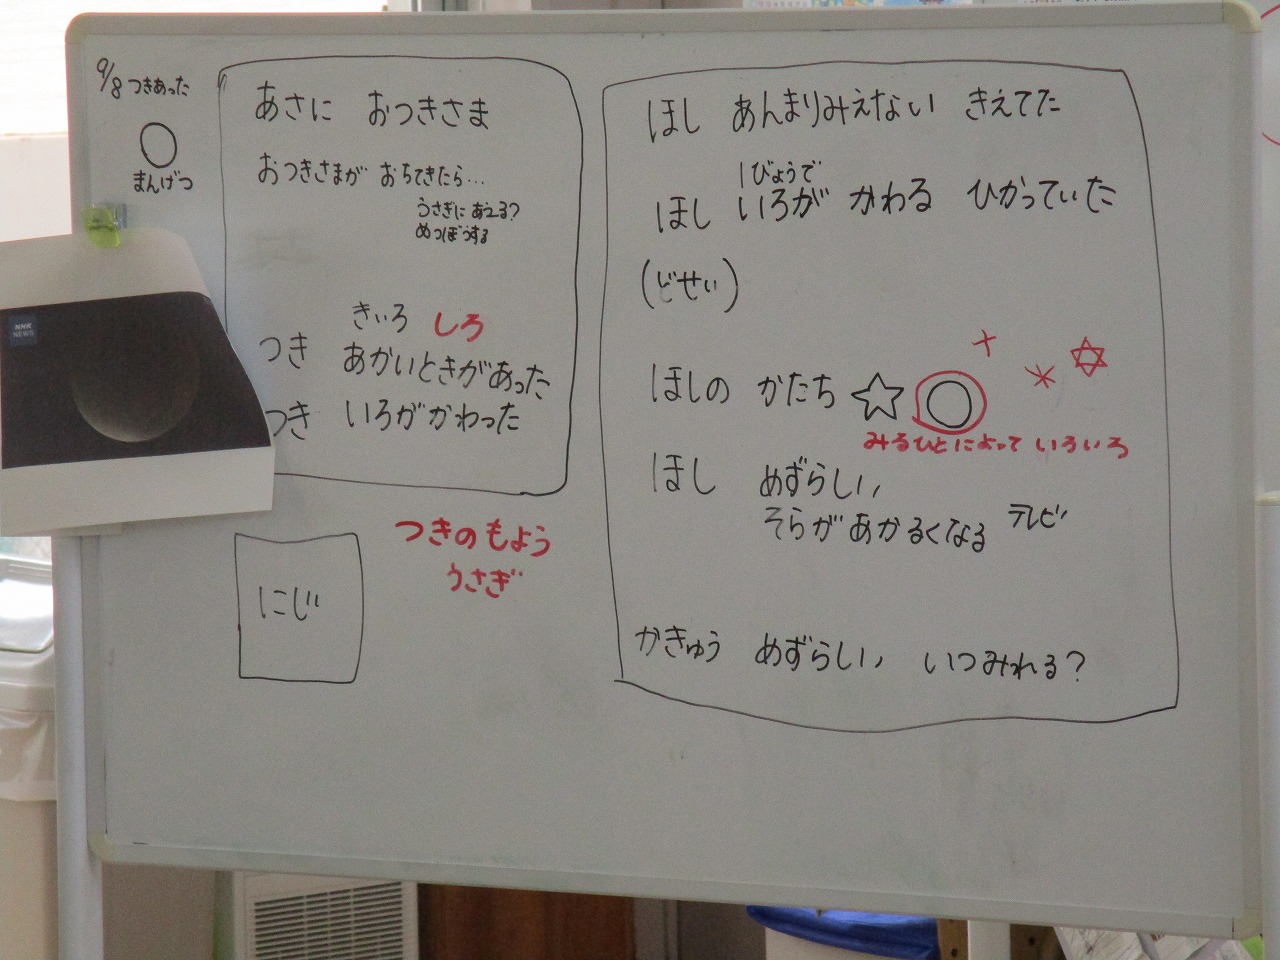 9/8 つきあった
まんげつ
NHK
NEWS
あさに おつきさま
おつきさまが おちてきたら…
うさぎに あえる?
めつぼうする
きいろ しろ
つき あかいときがあった
つき いろがかわった
にじ
つきのもよう
うさぎ
ほし あんまりみえない きえてた
1びょうで
ほし いろが かわる ひかっていた
(どせい)
ほしの かたち
みるひとによって いろいろ
ほし めずらしい
そらがあかるくなる テレビ
かきゅう めずらしい いつみれる?